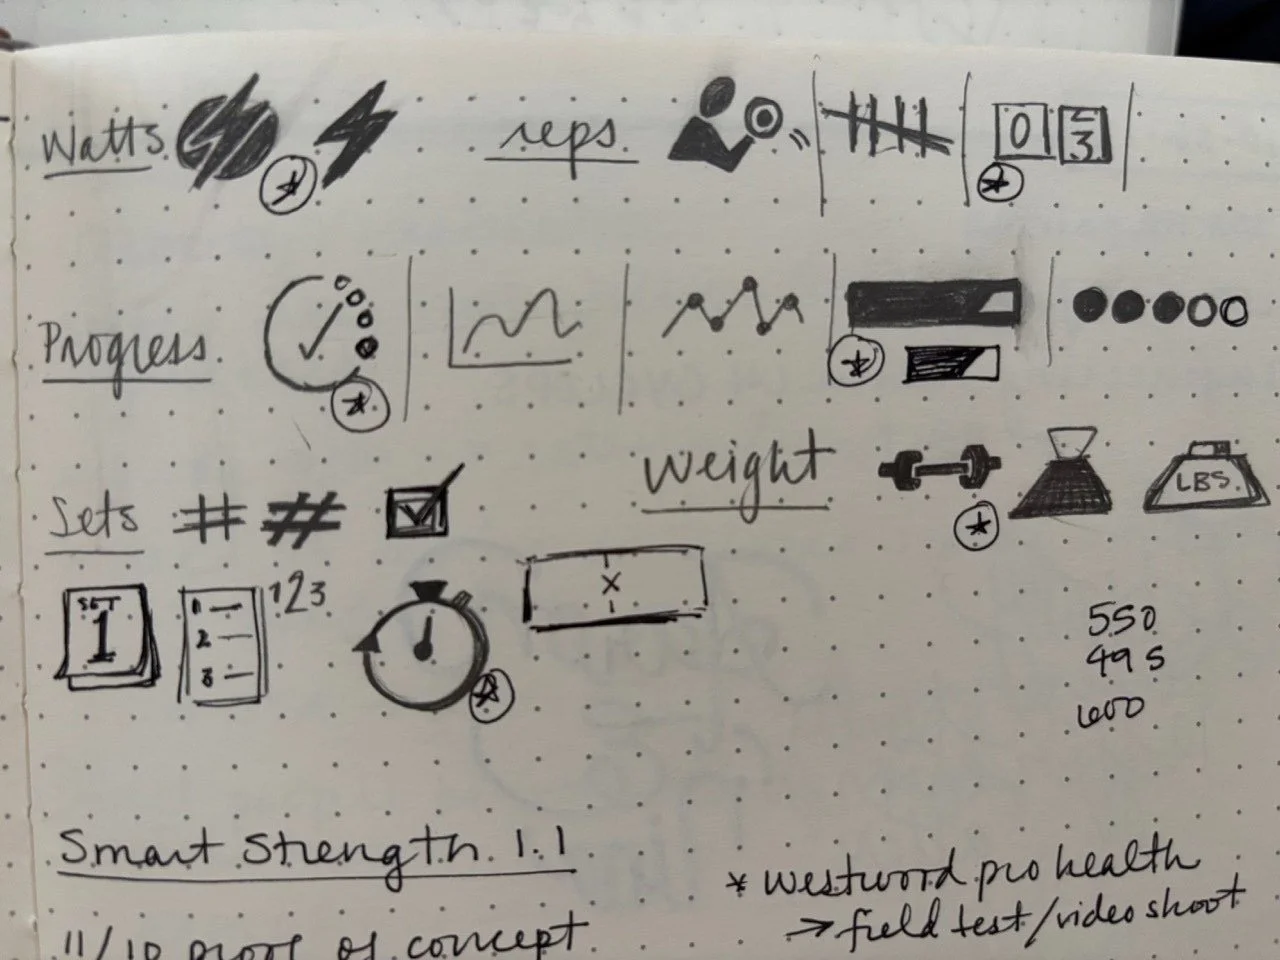 Watts
reps
0 2 3
Progress
Weight
LBS.
Sets # #
SET
1
1
2
3
123
X
550
495
600
Smart Strength 1.1
* westwood pro health
→ field test/video shoot
11/10 proof of concept